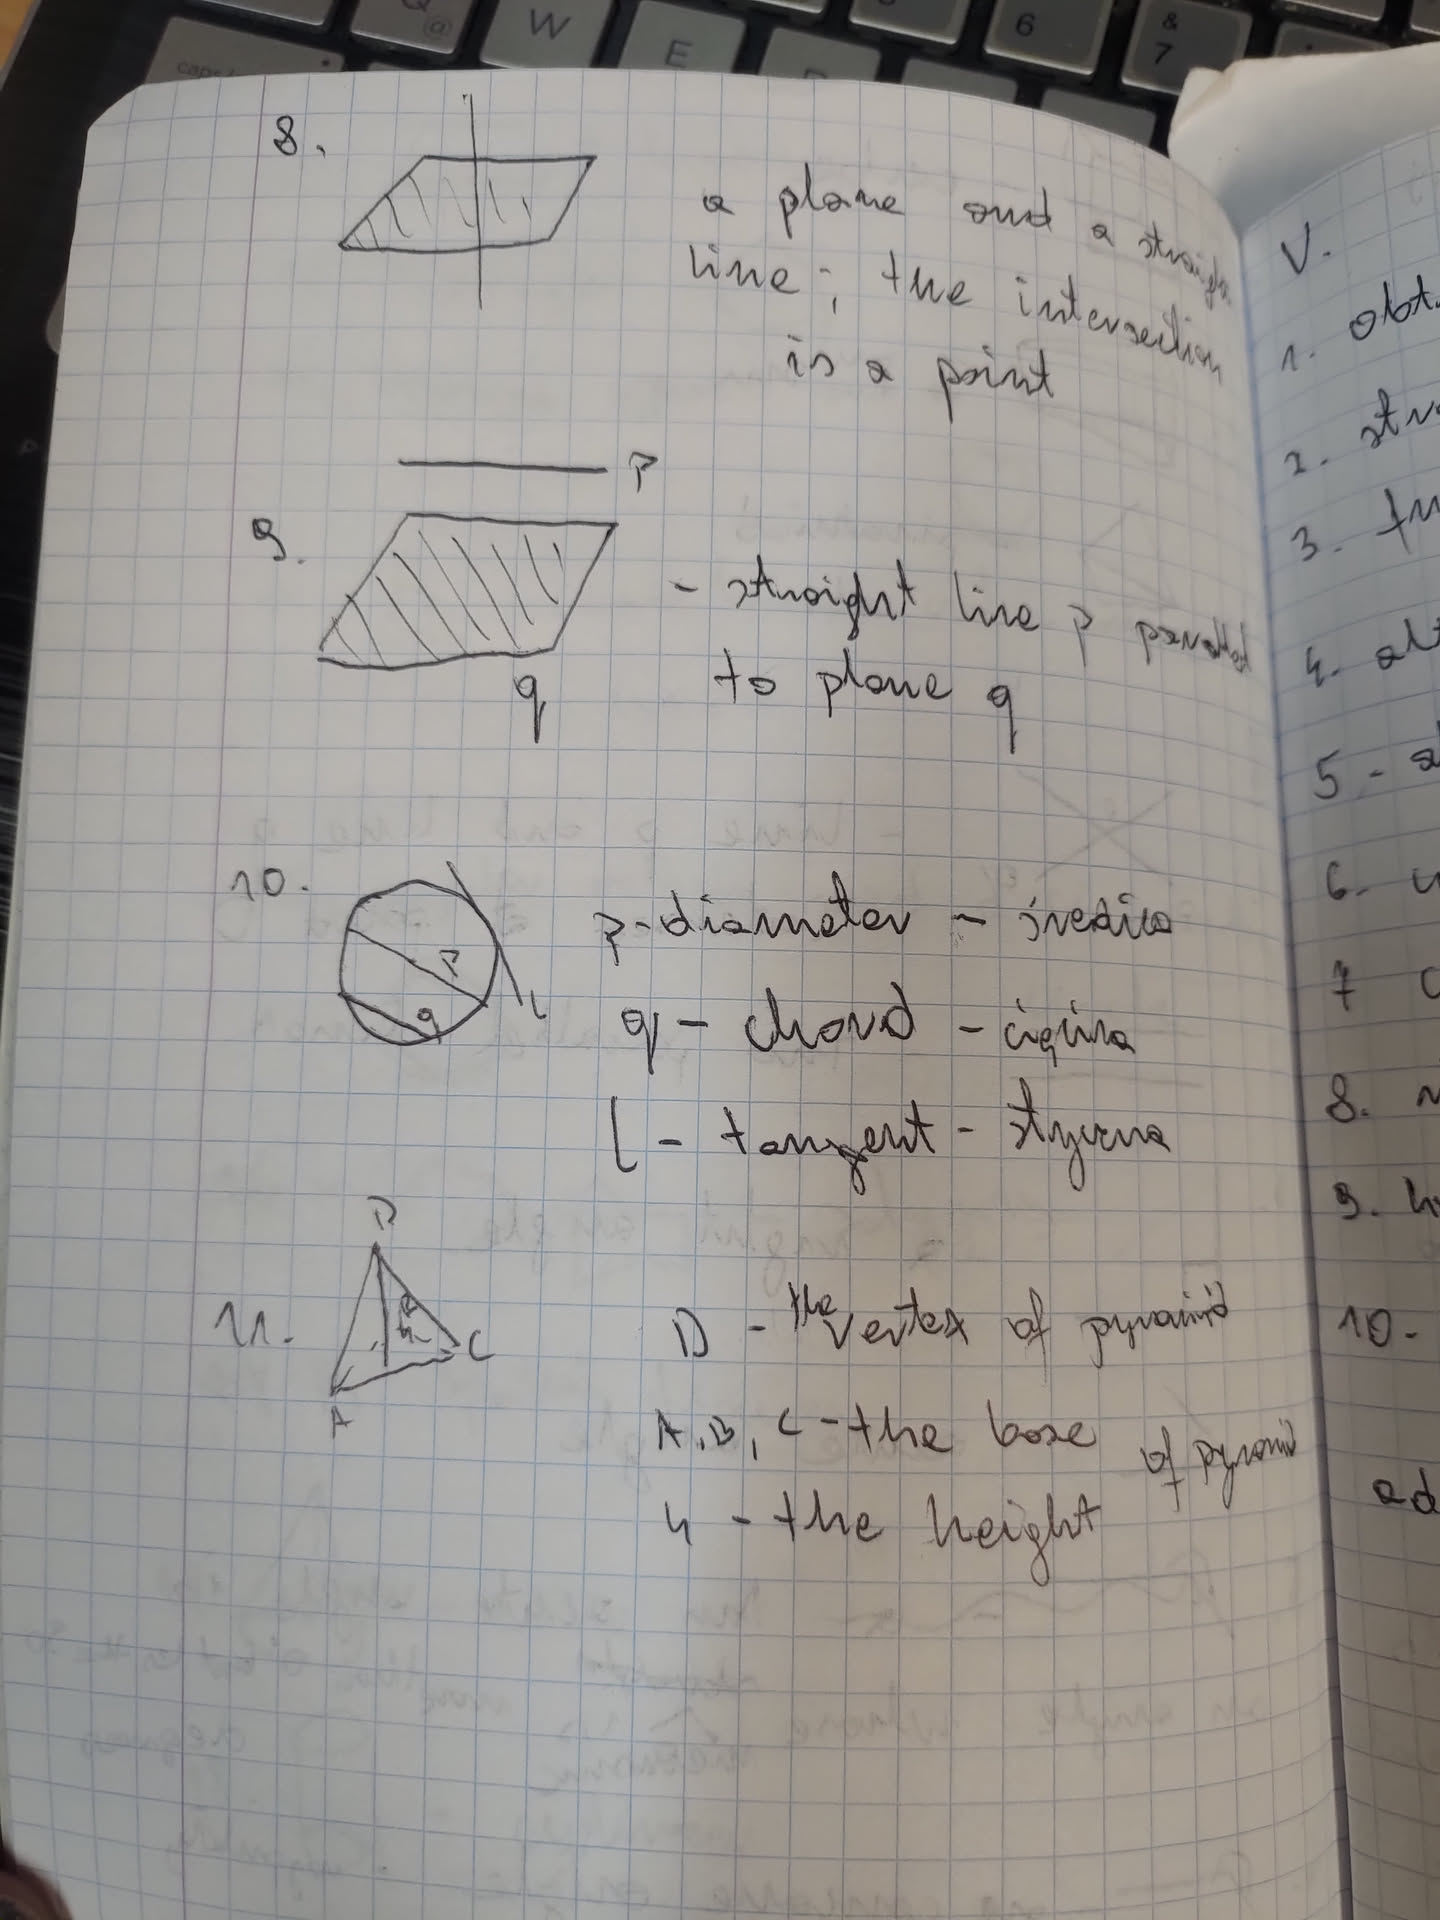 Q
@
W
E
6
&
7
caps
8.
a plane and a straight
line; the intersection
is a point
P
9.
- straight line p parallel
to plane q
q
10.
p - diameter - średica
P
q
q - chord - cięciwa
l
l - tangent - styczna
D
11.
h
C
A
D - the vertex of pyramid
A, B, C - the base of pyramid
h - the height
V.
1. obt
2. str
3.
4. alt
5 -
6.
7
8.
9. h
10.
ad